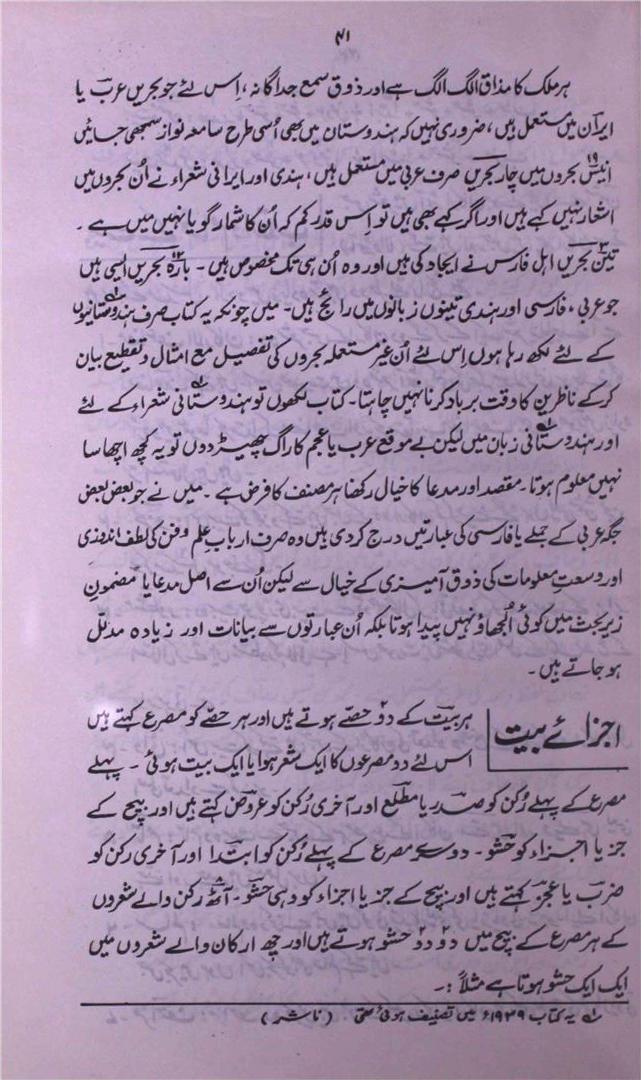 ۴۱
ہر ملک کا مذاق الگ الگ ہے اور ذوق سمع جداگانہ، اِس لئے جو بحریں عرب یا
ایران میں مستعمل ہیں، ضروری نہیں کہ ہندوستان میں بھی اُسی طرح سامعہ نواز سمجھی جائیں
انیس۱۹ بحروں میں چار بحریں صرف عربی میں مستعمل ہیں، ہندی اور ایرانی شعراء نے اُن بحروں میں
اشعار نہیں کہے ہیں اور اگر کہے بھی ہیں تو اِس قدر کم کہ اُن کا شمار گویا نہیں میں ہے ۔
تین۳ بحریں اہل فارس نے ایجاد کی ہیں اور وہ اُن ہی تک مخصوص ہیں ۔ بارہ۱۲ بحریں ایسی ہیں
جو عربی، فارسی اور ہندی تینوں زبانوں میں رائج ہیں ۔ میں چونکہ یہ کتاب صرف ہندوستانیوں۱
کے لئے لکھ رہا ہوں اِس لئے اُن غیر مستعملہ بحروں کی تفصیل مع امثال و تقطیع بیان
کرکے ناظرین کا وقت برباد کرنا نہیں چاہتا۔ کتاب لکھوں تو ہندوستانی۱ شعراء کے لئے
اور ہندوستانی۱ زبان میں لیکن بے موقع عرب یا عجم کا راگ چھیڑ دوں تو یہ کچھ اچھا سا
نہیں معلوم ہوتا ۔ مقصد اور مدعا کا خیال رکھنا ہر مصنف کا فرض ہے ۔ میں نے جو بعض بعض
جگہ عربی کے جملے یا فارسی کی عبارتیں درج کردی ہیں وہ صرف ارباب علم و فن کی لطف اندوزی
اور وسعتِ معلومات کی ذوق آمیزی کے خیال سے لیکن اُن سے اصل مدعا یا مضمونِ
زیر بحث میں کوئی اُلجھاؤ نہیں پیدا ہوتا بلکہ اُن عبارتوں سے بیانات اور زیادہ مدلل
ہو جاتے ہیں ۔
اجزائے بیت
ہر بیت کے دو۲ حصے ہوتے ہیں اور ہر حصے کو مصرع کہتے ہیں
اس لئے دو مصرعوں کا ایک شعر ہوا یا ایک بیت ہوئی ۔ پہلے
مصرع کے پہلے رُکن کو صدر یا مطلع اور آخری رُکن کو عروض کہتے ہیں اور بیچ کے
جز یا اجزاء کو حشو ۔ دوسرے مصرع کے پہلے رُکن کو ابتدا اور آخری رکن کو
ضرب یا عجز کہتے ہیں اور بیچ کے جز یا اجزاء کو وہی حشو ۔ آٹھ رکن والے شعروں
کے ہر مصرع کے بیچ میں دو دو حشو ہوتے ہیں اور چھ ارکان والے شعروں میں
ایک ایک حشو ہوتا ہے مثلاً :۔
۱ یہ کتاب ۱۹۳۹ء میں تصنیف ہوئی تھی (ناشر)